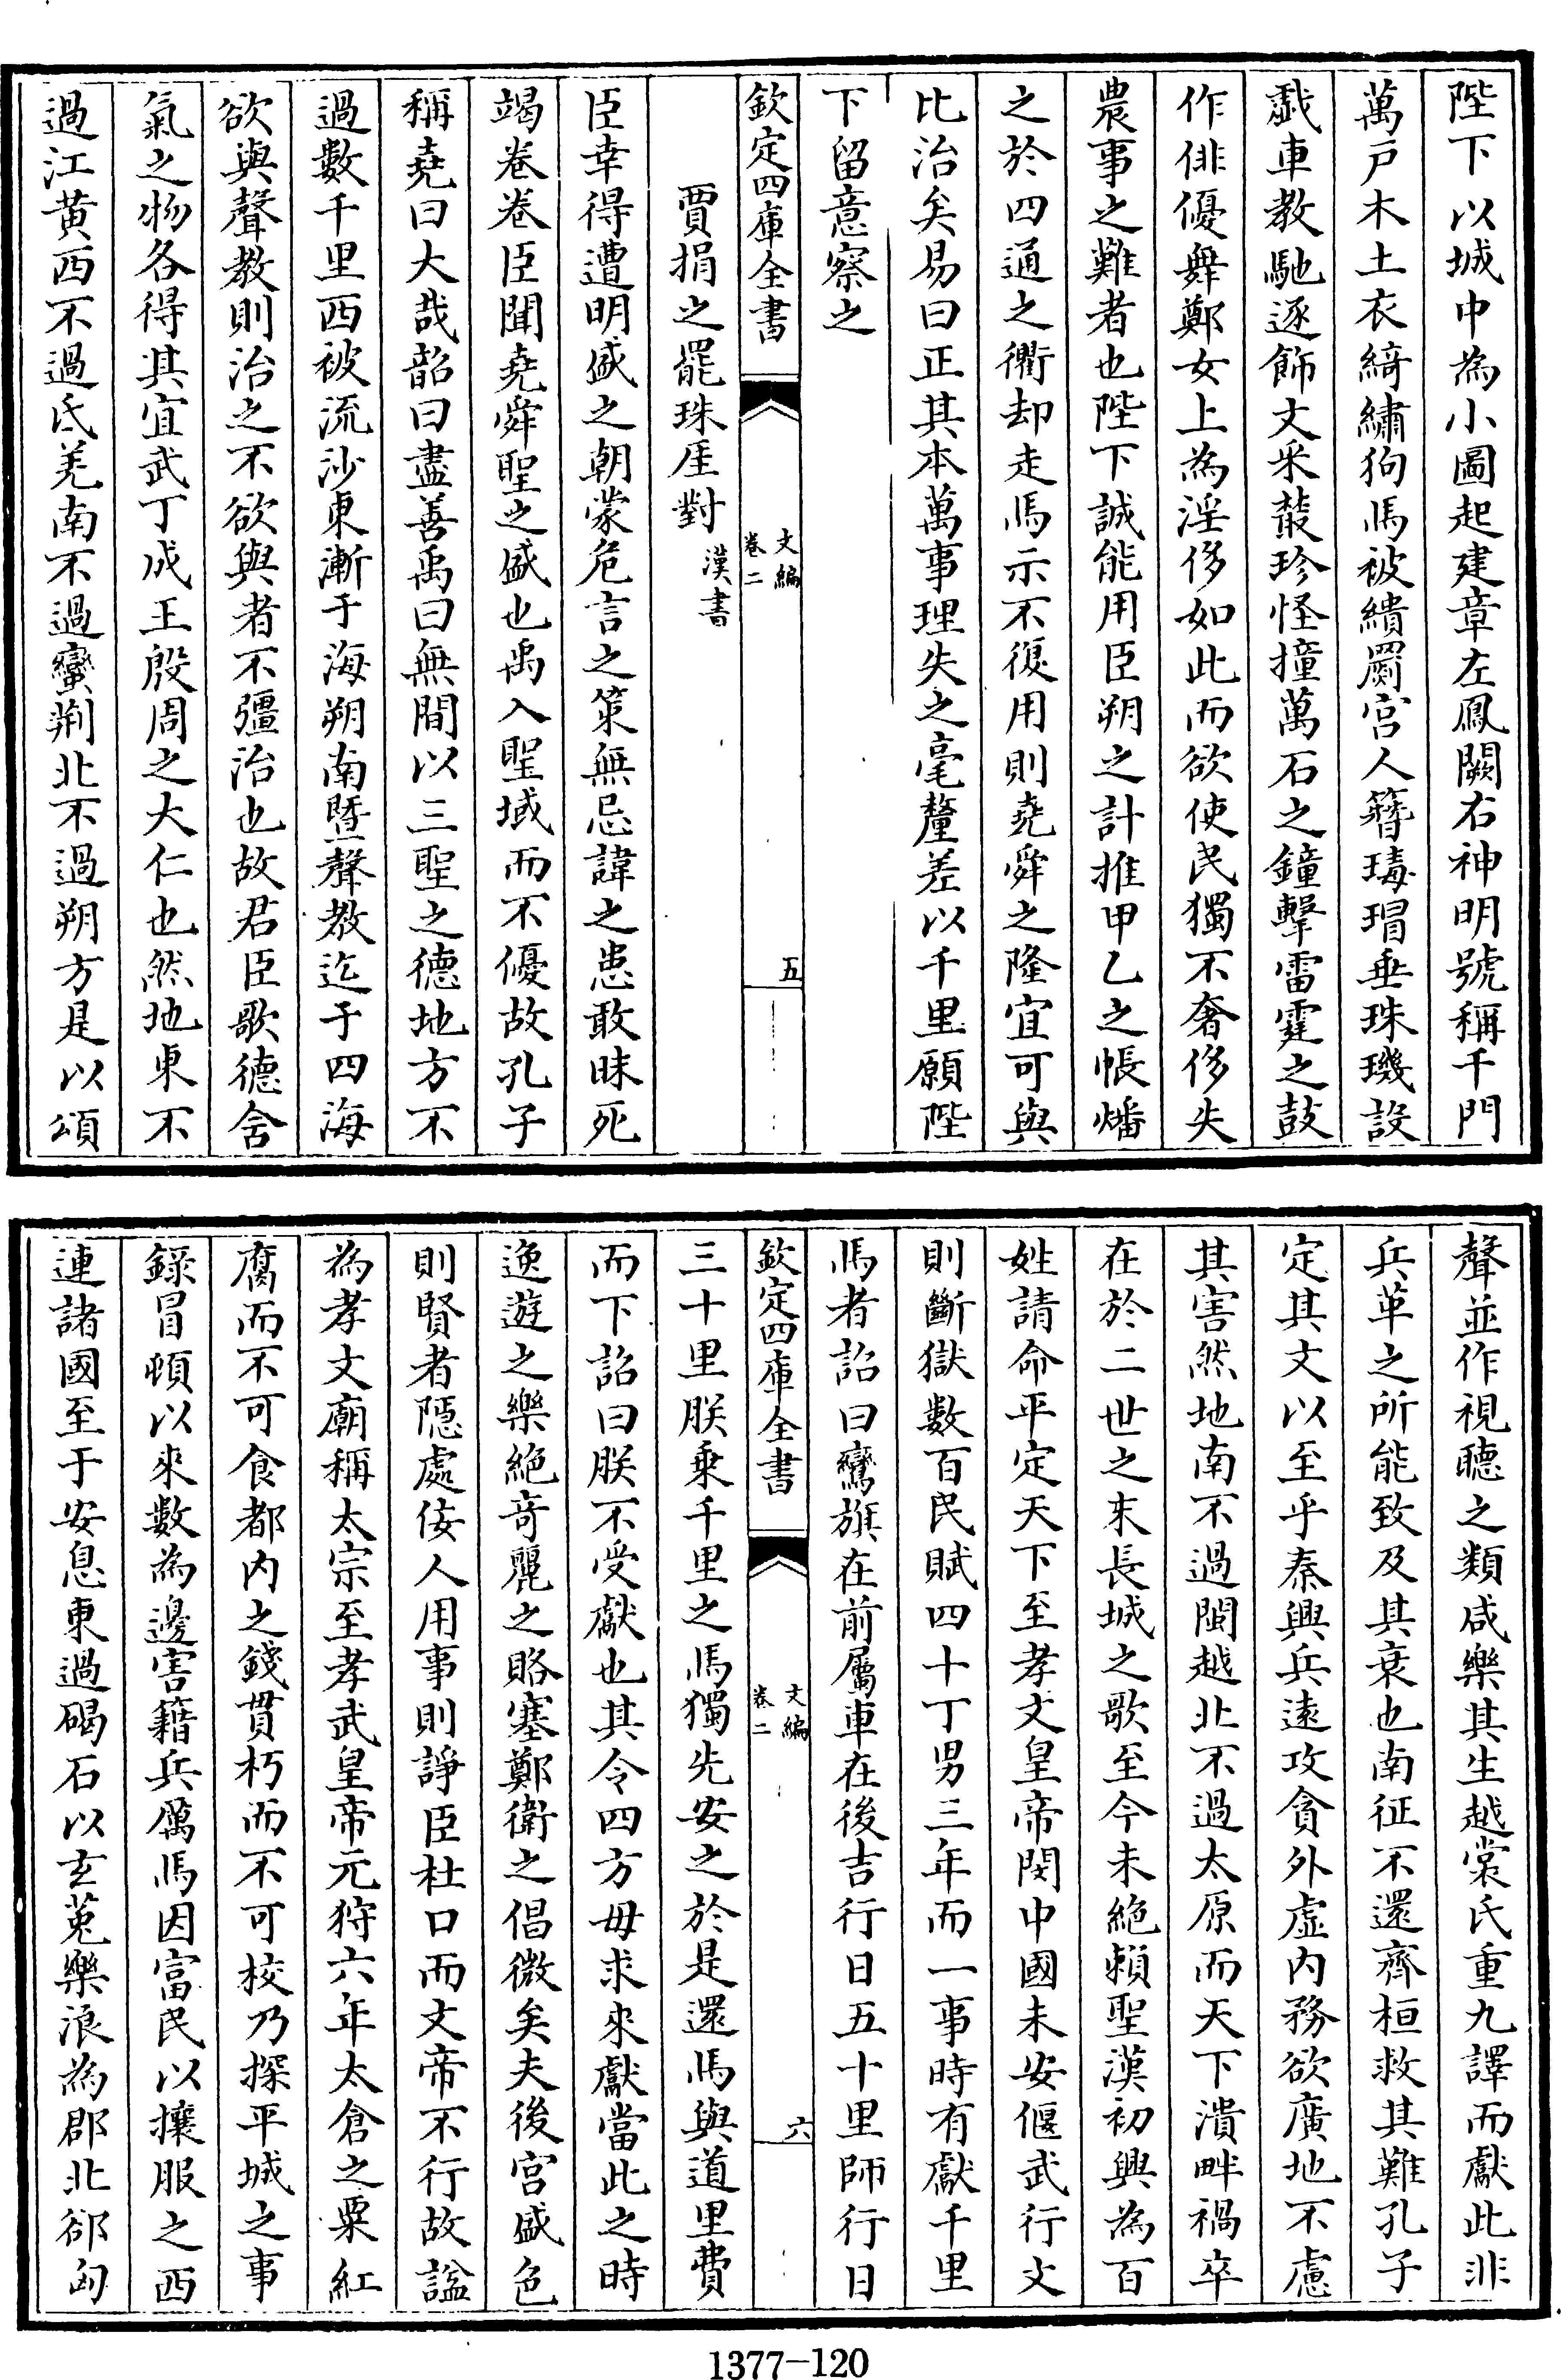 陛下以城中為小圖起建章左鳳闕右神明號稱千門
萬戸木土衣綺繡狗馬被繢罽宫人簪瑇瑁垂珠璣設
戯車教馳逐飾文采䕺珍怪撞萬石之鐘擊雷霆之鼓
作俳優舞鄭女上為淫侈如此而欲使民獨不奢侈失
農事之難者也陛下誠能用臣朔之計推甲乙之帳燔
之於四通之衢却走馬示不復用則堯舜之隆宜可與
比治矣易曰正其本萬事理失之毫釐差以千里願陛
下留意察之
欽定四庫全書
文編
卷二
五
賈捐之罷珠厓對漢書
臣幸得遭明盛之朝蒙危言之策無忌諱之患敢昧死
竭卷卷臣聞堯舜聖之盛也禹入聖域而不優故孔子
稱堯曰大哉韶曰盡善禹曰無間以三聖之德地方不
過數千里西被流沙東漸于海朔南暨聲教迄于四海
欲與聲教則治之不欲與者不彊治也故君臣歌德含
氣之物各得其宜武丁成王殷周之大仁也然地東不
過江黄西不過氐羌南不過蠻荆北不過朔方是以頌
聲並作視聽之類咸樂其生越裳氏重九譯而獻此非
兵革之所能致及其衰也南征不還齊桓救其難孔子
定其文以至乎秦興兵遠攻貪外虛内務欲廣地不慮
其害然地南不過閩越北不過太原而天下潰畔禍卒
在於二世之末長城之歌至今未絶賴聖漢初興為百
姓請命平定天下至孝文皇帝閔中國未安偃武行文
則斷獄數百民賦四十丁男三年而一事時有獻千里
馬者詔曰鸞旗在前屬車在後吉行日五十里師行日
欽定四庫全書
文編
卷二
六
三十里朕乗千里之馬獨先安之於是還馬與道里費
而下詔曰朕不受獻也其令四方毋求來獻當此之時
逸遊之樂絶奇麗之賂塞鄭衛之倡微矣夫後宫盛色
則賢者隠處佞人用事則諍臣杜口而文帝不行故諡
為孝文廟稱太宗至孝武皇帝元狩六年太倉之粟紅
腐而不可食都内之錢貫朽而不可校乃探平城之事
錄冒頓以來數為邊害籍兵厲馬因富民以攘服之西
連諸國至于安息東過碣石以玄菟樂浪為郡北郤匈
1377-120